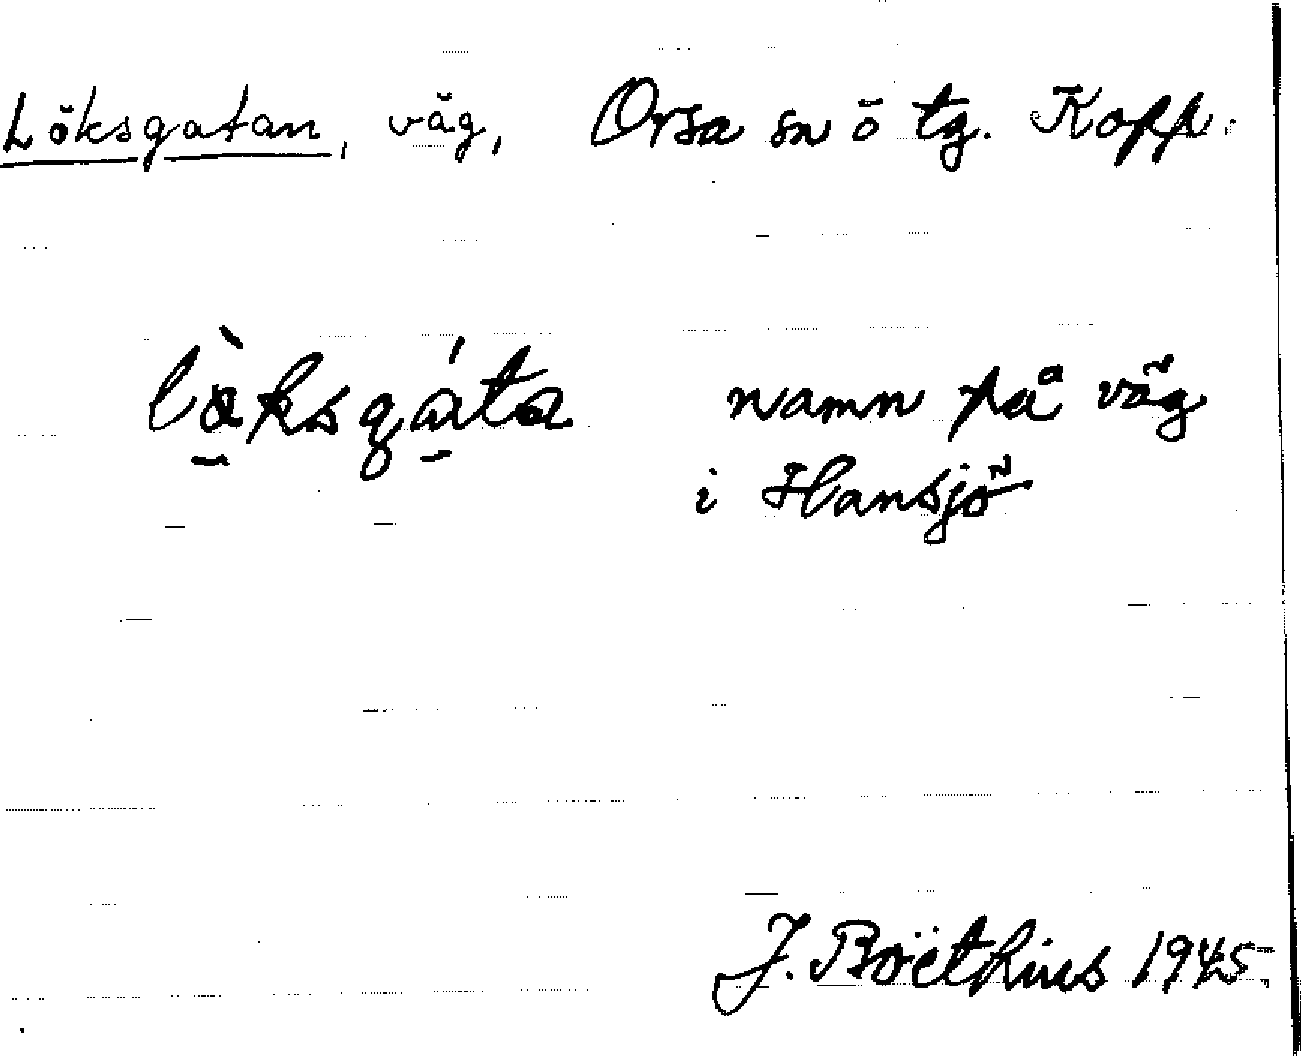 Löksgatan, väg, Orsa sn o tg. Kopp.
lὰ̠ksgά̠ta namn på väg
i Hansjö
J. Boëthius 1945.